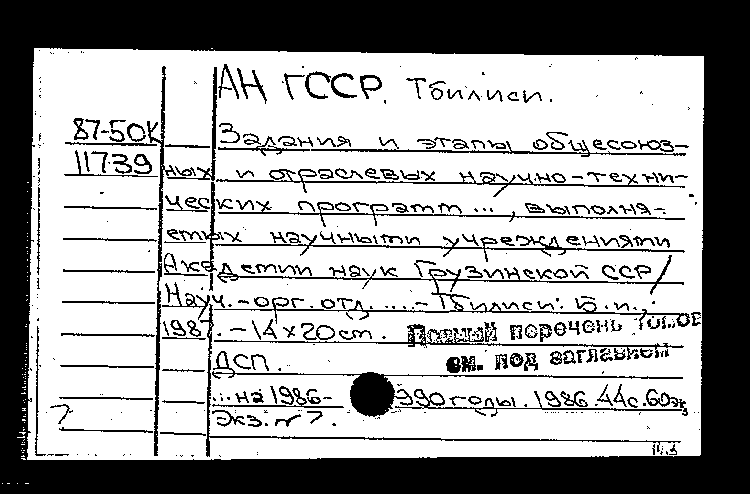 АН ГССР. Тбилиси.
87-50К Задания и этапы общесоюз-
11739 ных и отраслевых научно-техни-
ческих программ ..., выполня-
емых научными учреждениями
Академии наук Грузинской ССР /
Науч.-орг. отд. ... .- Тбилиси: Б.и.,
1987. - 14 x 20 см. Полный перечень томов
см. под заглавием
ДСП.
... на 1986- 990 годы. 1986. 44с. 60экз
Экз. № 7.
7